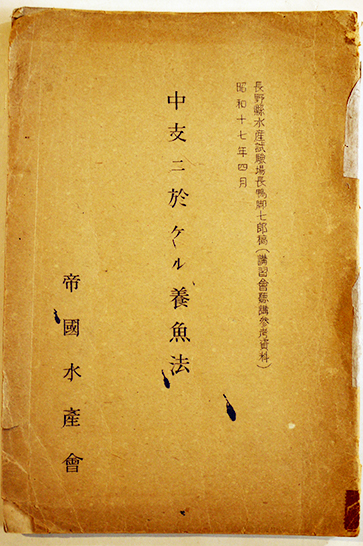 長野縣水産試驗場長鴨脚七郎稿(講習會聽講參考資料)
昭和十七年四月
中支ニ於ケル養魚法
帝國水產會